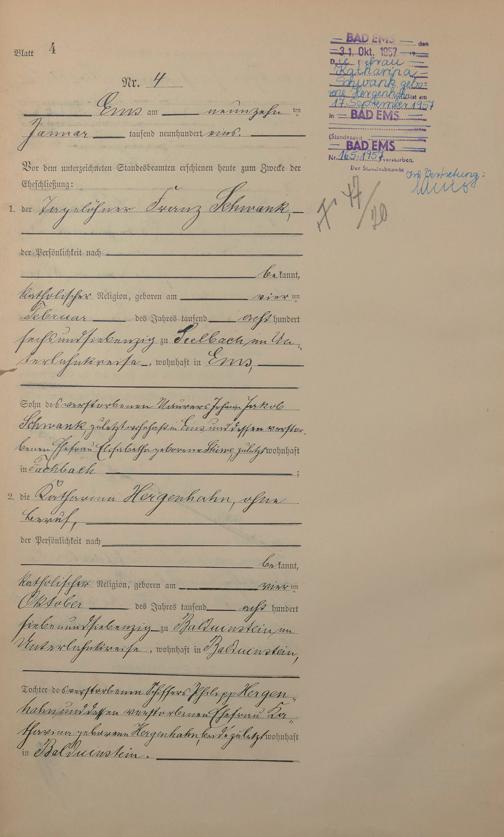 Blatt 4
Nr. 4
Ems am neunzehnten
Januar tausend neunhundert eins.
Vor dem unterzeichneten Standesbeamten erschienen heute zum Zwecke der
Eheschließung:
1. der Tagelöhner Franz Schwank,
der Persönlichkeit nach
be kannt,
katholischer Religion, geboren am vierten
Februar des Jahres tausend acht hundert
sechsundsiebenzig zu Seelbach im Un-
terlahnkreise, wohnhaft in Ems,
Sohn des verstorbenen Maurers Jakob
Schwank, zuletzt wohnhaft in Ems und dessen verstor-
benen Ehefrau Elisabetha geborene zuletzt wohnhaft
in Dachbach ;
2. die Katharina Hergenhahn, ohne
Beruf,
der Persönlichkeit nach
be kannt,
katholischer Religion, geboren am vierten
Oktober des Jahres tausend acht hundert
siebenundsiebenzig zu Balduinstein im
Unterlahnkreise, wohnhaft in Balduinstein,
Tochter des verstorbenen Schiffers Philipp Hergen-
hahn und dessen verstorbenen Ehefrau Ka-
tharina geborenen Hergenhahn, beide zuletzt wohnhaft
in Balduinstein.
BAD EMS, den
31. Okt. 1957
Die Ehefrau
Katharina
Schwank gebo-
rene Hergenhahn ist am
17. September 1957
in BAD EMS
verstorben.
(Standesamt
BAD EMS
Nr. 165/1957
Der Standesbeamte